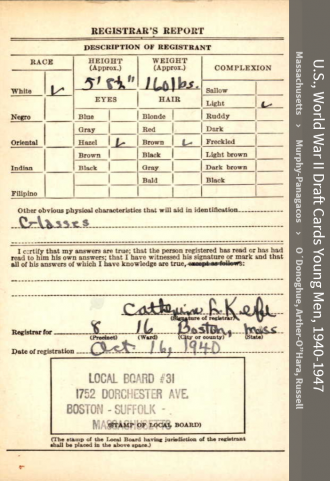 REGISTRAR'S REPORT
DESCRIPTION OF REGISTRANT
RACE HEIGHT (Approx.) WEIGHT (Approx.) COMPLEXION
White ✓ 5' 8½" 160 lbs. Sallow
EYES HAIR Light ✓
Negro Blue Blonde Ruddy
Gray Red Dark
Oriental Hazel ✓ Brown ✓ Freckled
Brown Black Light brown
Indian Black Gray Dark brown
Bald Black
Filipino
Other obvious physical characteristics that will aid in identification
Glasses
I certify that my answers are true; that the person registered has read or has had
read to him his own answers; that I have witnessed his signature or mark and that
all of his answers of which I have knowledge are true, except as follows:
Catherine L. Keefe
(Signature of registrar)
Registrar for 8 16 Boston, Mass
(Precinct) (Ward) (City or county) (State)
Date of registration Oct 16, 1940
LOCAL BOARD #31
1752 DORCHESTER AVE.
BOSTON - SUFFOLK -
MASSACHUSETTS
(STAMP OF LOCAL BOARD)
(The stamp of the Local Board having jurisdiction of the registrant
shall be placed in the above space.)
U.S., World War II Draft Cards Young Men, 1940-1947
Massachusetts > Murphy-Panagacos > O`Donoghue, Arther-O""Hara, Russell